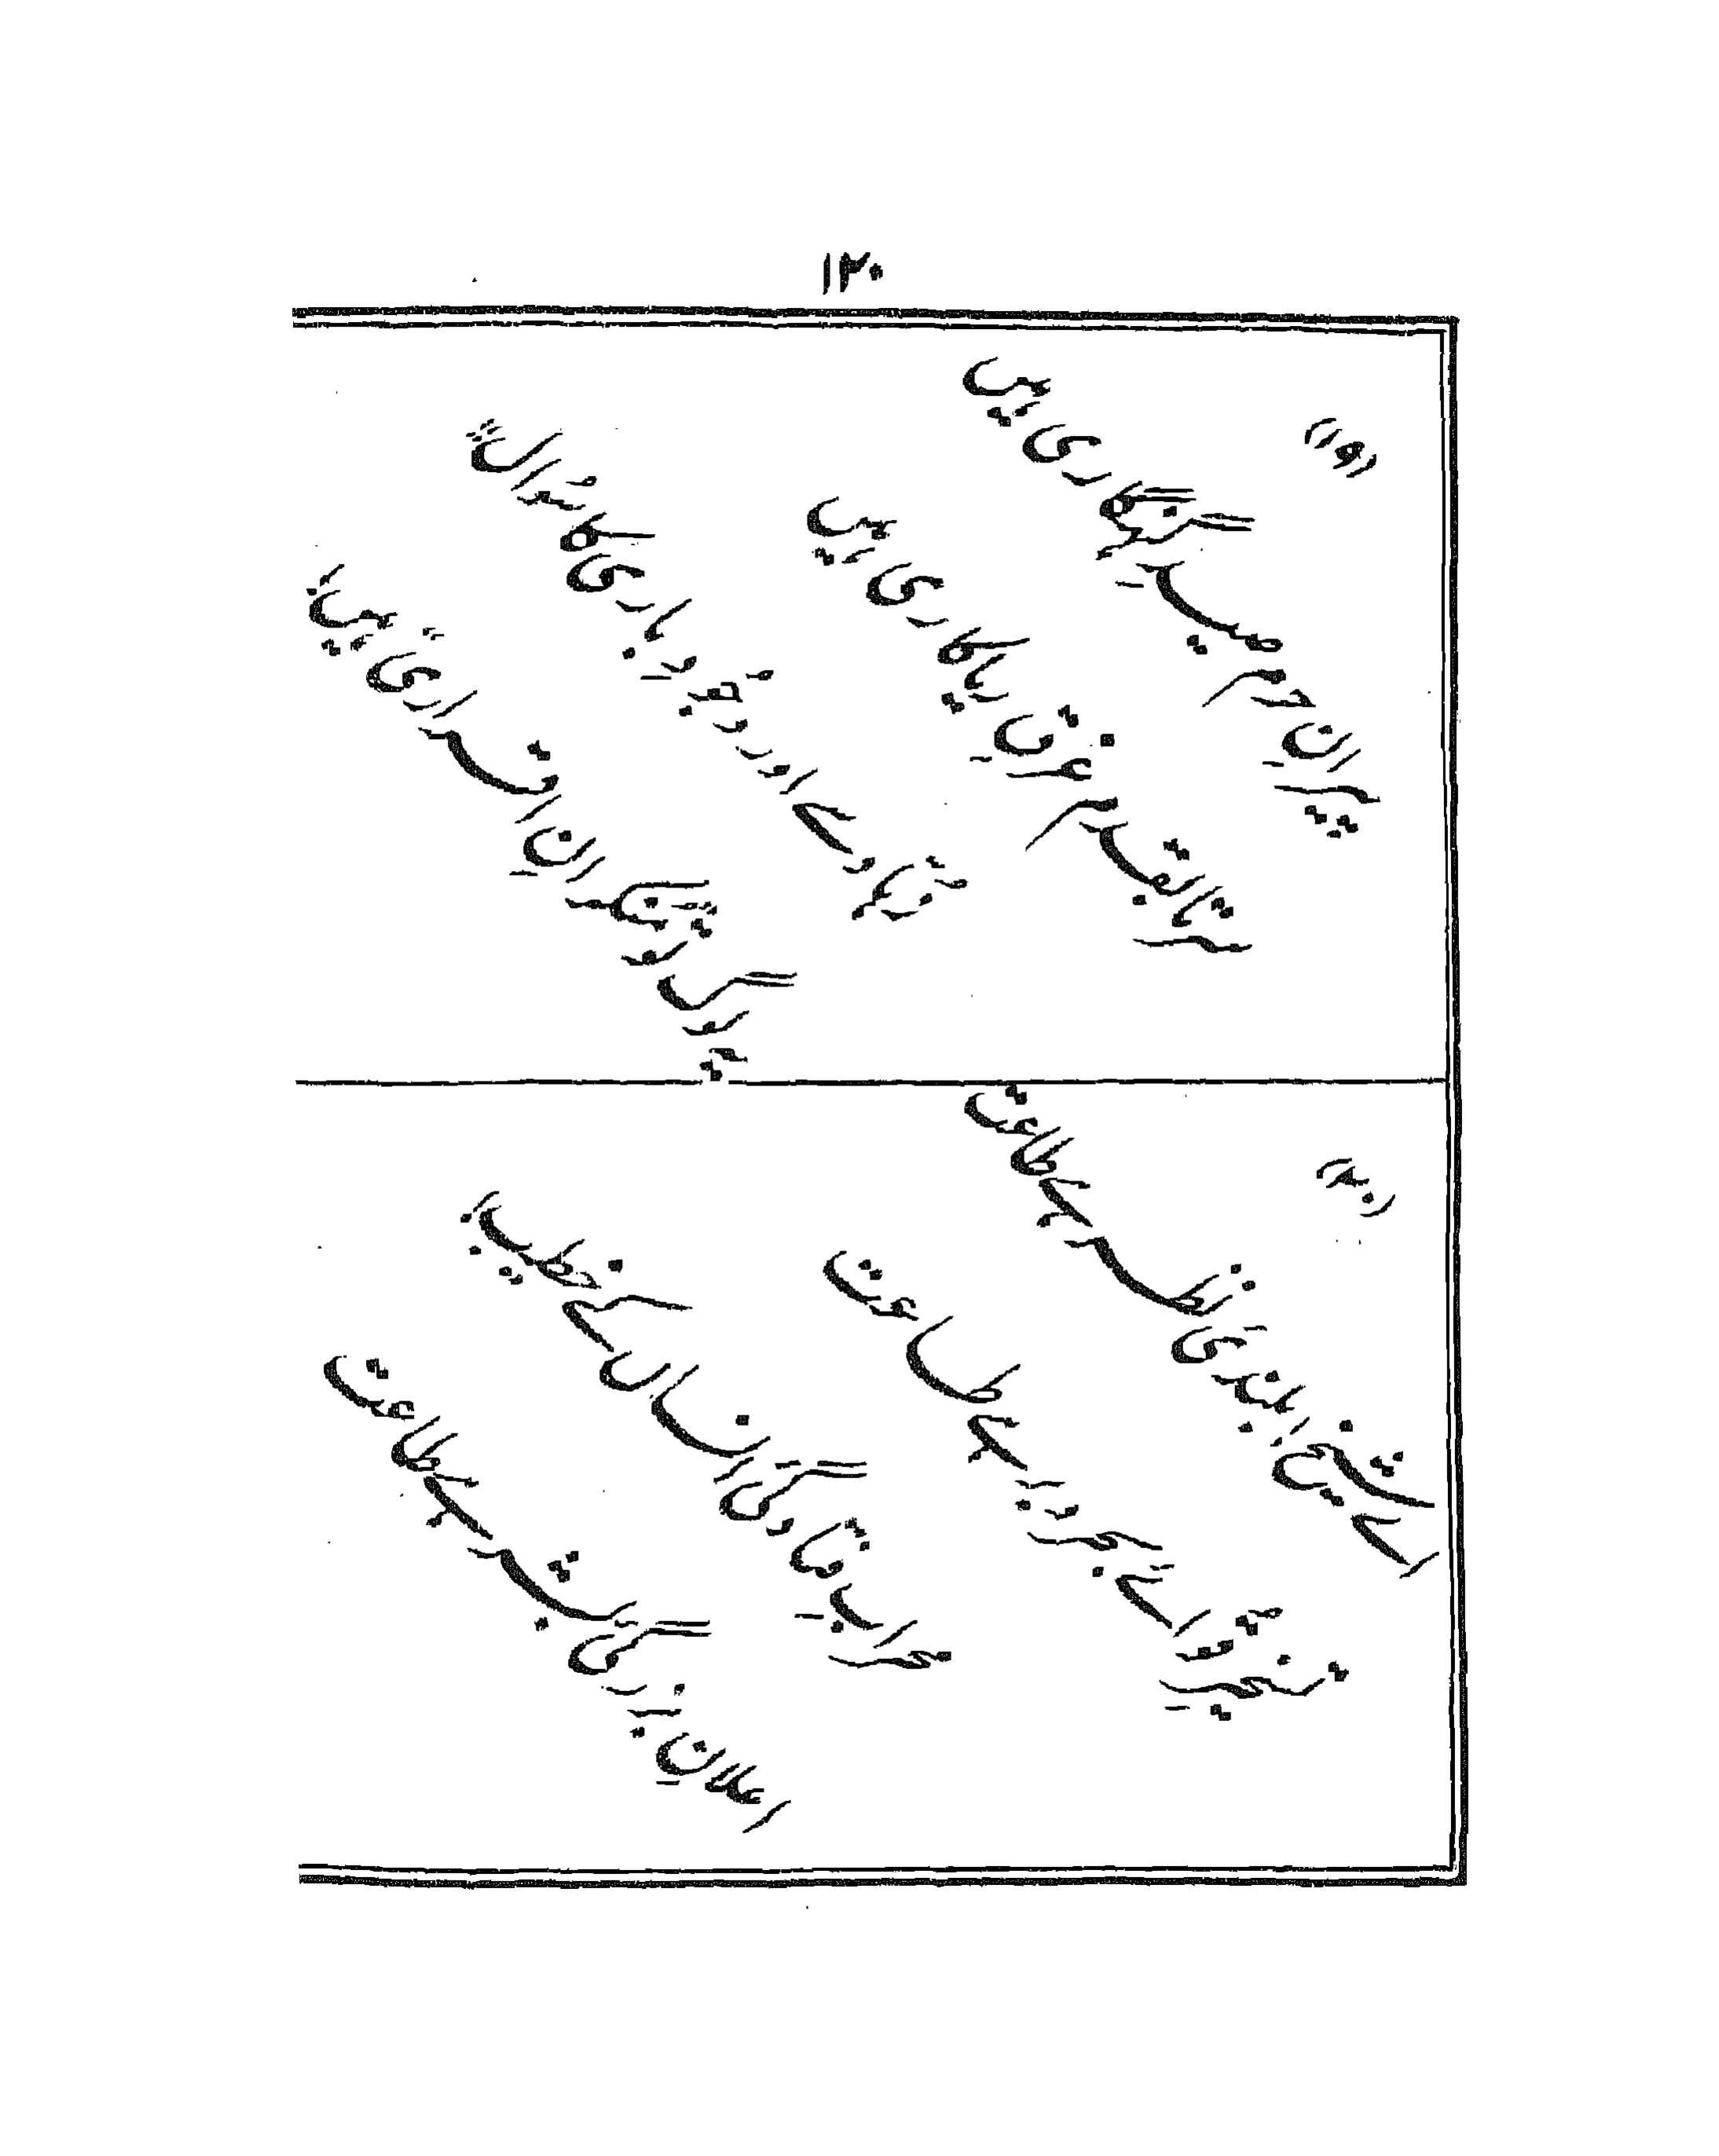 ۱۲۰
(۱۹)
پیرانِ حرم صیدِ گنہگاری ہیں
سر تا بقدم غرقِ ریاکاری ہیں
زُہّاد سے اور جُود باری کا سُوال
یہ لوگ تو منکرانِ اقراری ہیں
(۲۰)
اے شیخ! بلندیَ نظر ہے طاعت
تسخیرِ قُوائے بحر و بر ہے طاعت
محرابِ فتادگیِ انساں کے خطیب!
اعلانِ بزرگیِ بشر ہے طاعت